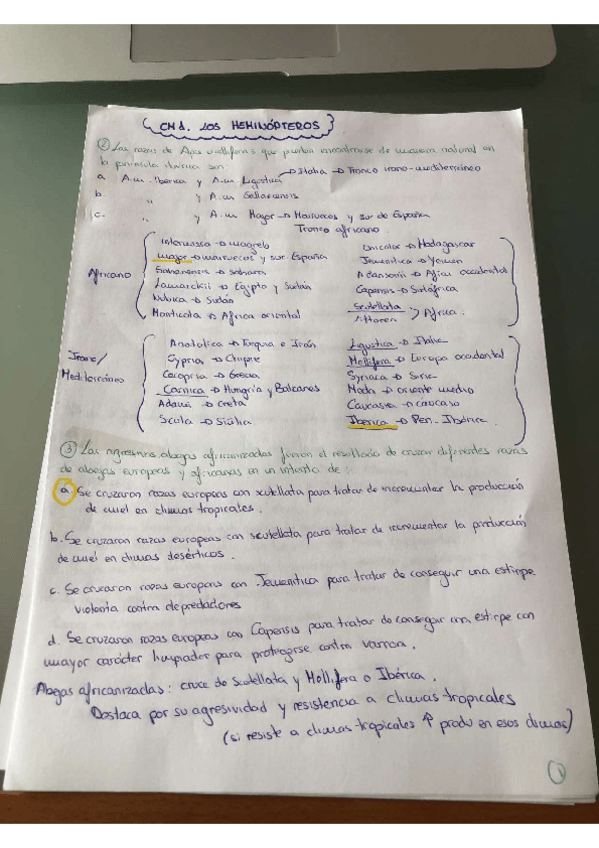 CM1. LOS HEMINÓPTEROS
② Las razas de Apis mellifera que pueden encontrarse de manera natural en
la península ibérica son:
a. A.m. Iberica y A.m. Ligustica → Italia → Tronco irano-mediterráneo
b. " y A.m
c. " y A.m Mayor → Marruecos y sur de España
Tronco africano.
Africano
Intermissa → magreb
major → marruecos y sur España
Sahariensis → Sahara
Lamarckii → Egipto y Sudán
Nubica → Sudán
Monticola → Africa oriental
Unicolor → Madagascar
Jemenitica → Yemen
Adansonii → Africa occidental
Capensis → Sudáfrica
Scutellata
Littorea > Africa.
Irano/
Mediterráneo
Anatolica → Turquía e Irán
Cypria → Chipre
Cecropia → Grecia
Carnica → Hungría y Balcanes
Adami → Creta
Sicula → Sicilia
Ligustica → Italia
Mellifera → Europa occidental
Syriaca → Siria
Meda → oriente medio
Caucasica → caucaso
Iberica → Pen. Ibérica.
③ Las agresivas abejas africanizadas fueron el resultado de cruzar diferentes razas
de abejas europeas y africanas en un intento de:
a. Se cruzaron razas europeas con scutellata para tratar de incrementar la producción
de miel en climas tropicales.
b. Se cruzaron razas europeas con scutellata para tratar de incrementar la producción
de miel en climas desérticos.
c. Se cruzaron razas europeas con Jemenitica para tratar de conseguir una estirpe
violenta contra depredadores
d. Se cruzaron razas europeas con Capensis para tratar de conseguir una estirpe con
mayor carácter limpiador para protegerse contra varroa.
Abejas africanizadas: cruce de Scutellata y Mellifera o Ibérica.
Destaca por su agresividad y resistencia a climas tropicales
(si resiste a climas tropicales ↑ produ en esos climas)
1